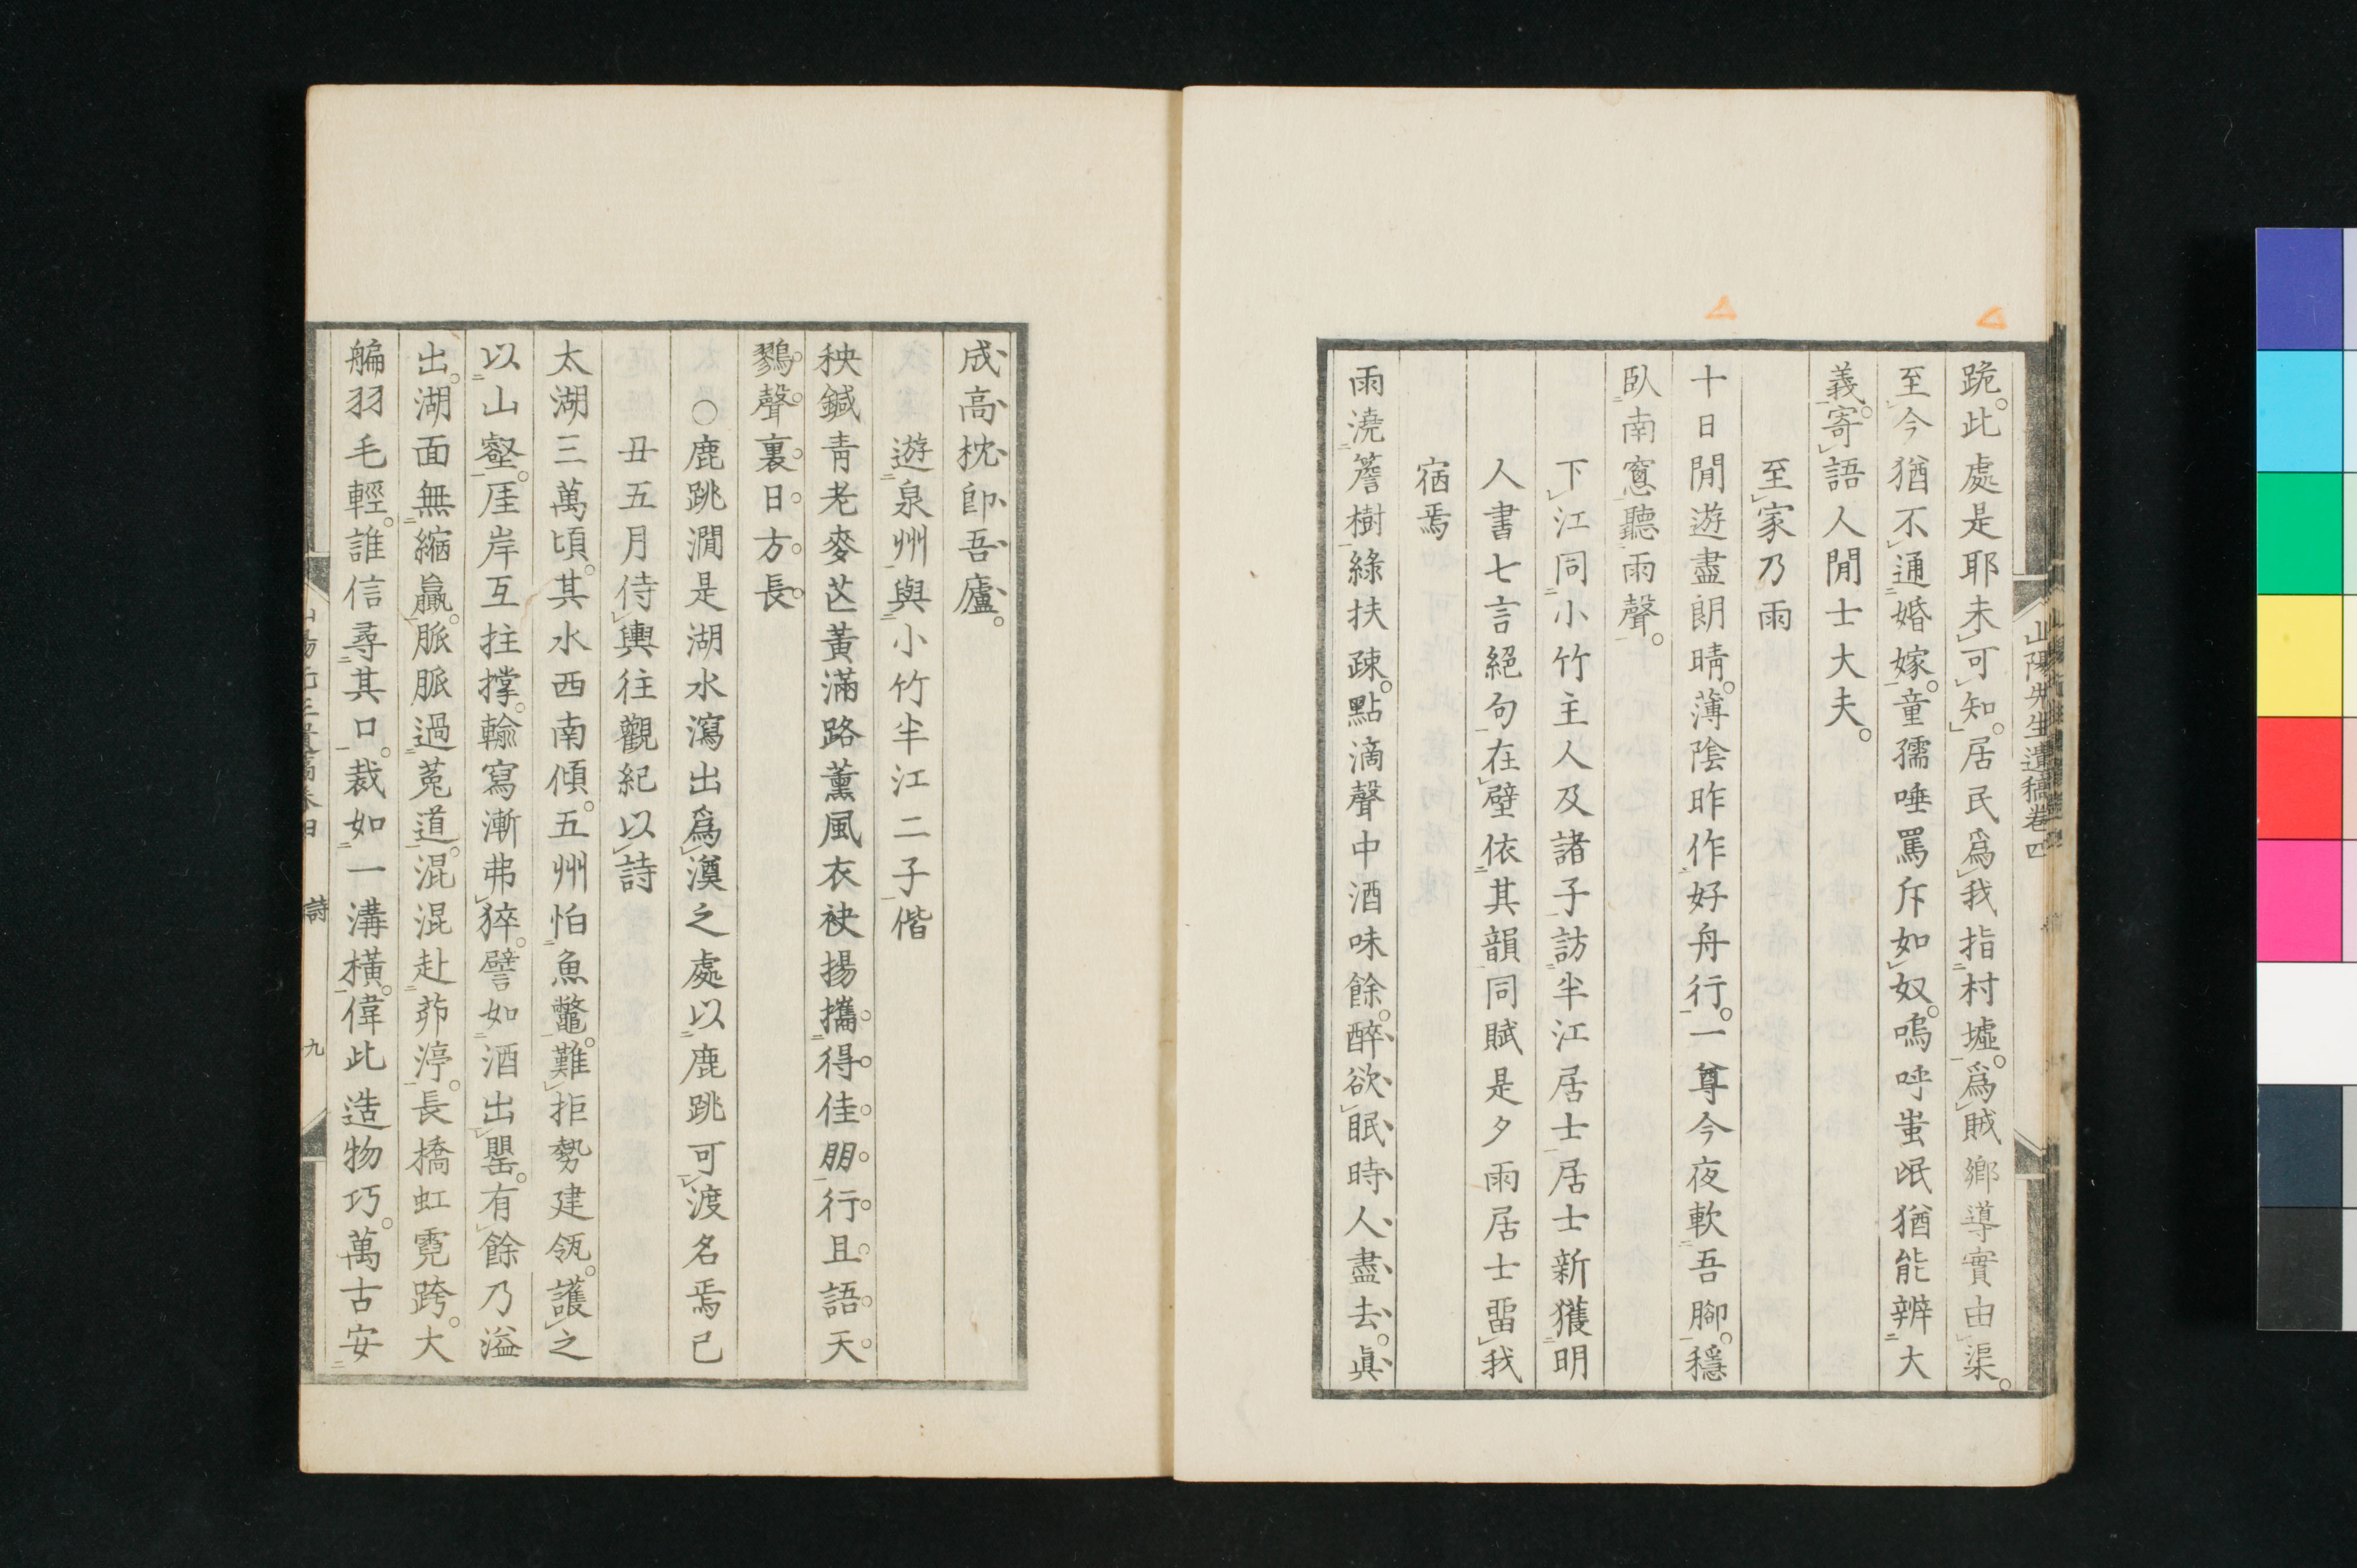 山陽先生遺稿卷四
跪。此處是耶未可知。居民爲我指村墟。爲賊鄉導實由渠。
至今猶不通婚嫁。童孺唾罵斥如奴。嗚呼蚩氓猶能辨大
義。寄語人閒士大夫。
至家乃雨
十日閒遊盡朗晴。薄陰昨作好舟行。一尊今夜軟吾腳。穩
臥南窻聽雨聲。
下江同小竹主人及諸子訪半江居士居士新獲明
人書七言絕句在壁依其韻同賦是夕雨居士畱我
宿焉
雨澆簷樹綠扶疎。點滴聲中酒味餘。醉欲眠時人盡去。眞
成高枕卽吾廬。
遊泉州與小竹半江二子偕
秧鍼靑老麥芒黃滿路薰風衣袂揚攜得佳朋行且語天
鷚聲裏日方長
○鹿跳澗是湖水瀉出爲澳之處以鹿跳可渡名焉己
丑五月侍輿往觀紀以詩
太湖三萬頃。其水西南傾。五州怕魚鼈。難拒勢建瓴。護之
以山壑。厓岸互拄撑。輸寫漸弗猝。譬如酒出罌。有餘乃溢
出。湖面無縮贏。脈脈過菟道。混混赴茆渟。長橋虹霓跨。大
艑羽毛輕。誰信尋其口。裁如一溝橫。偉此造物巧。萬古安
詩 九